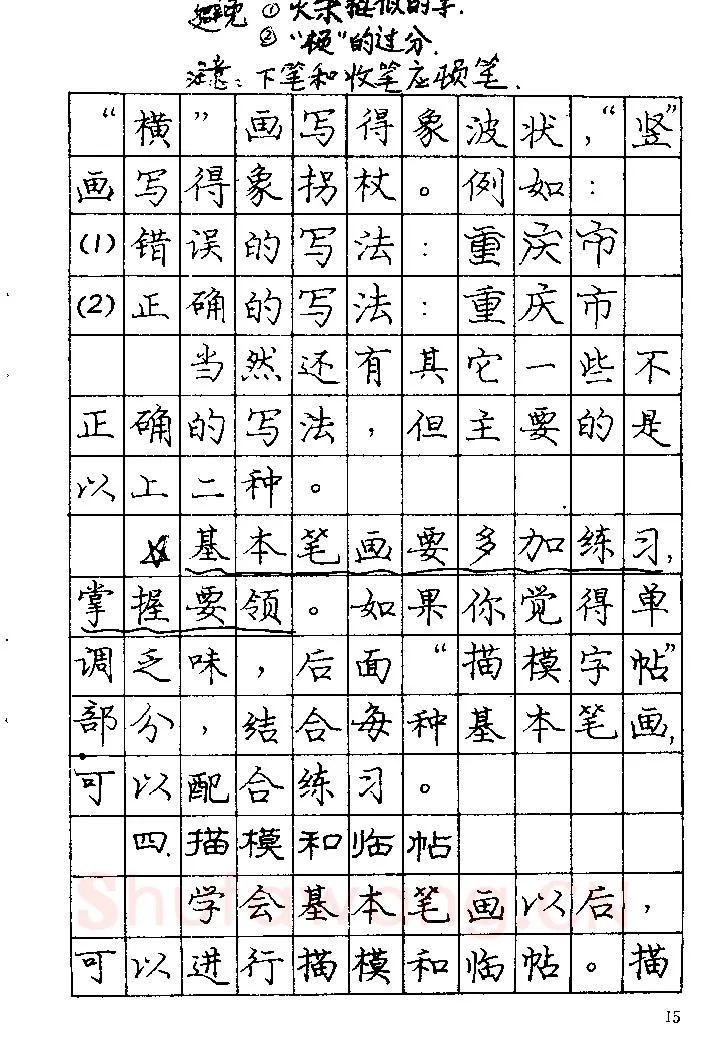 避免 ① 火柴棍似的字.
② “顿”的过分.
注意: 下笔和收笔应顿笔.
“横”画写得象波状,“竖”
画写得象拐杖。例如:
(1)错误的写法:重庆市
(2)正确的写法:重庆市
当然还有其它一些不
正确的写法,但主要的是
以上二种。
基本笔画要多加练习,
掌握要领。如果你觉得单
调乏味,后面“描模字帖”
部分,结合每种基本笔画,
可以配合练习。
四.描模和临帖
学会基本笔画以后,
可以进行描模和临帖。描
15
Shufawang.CN